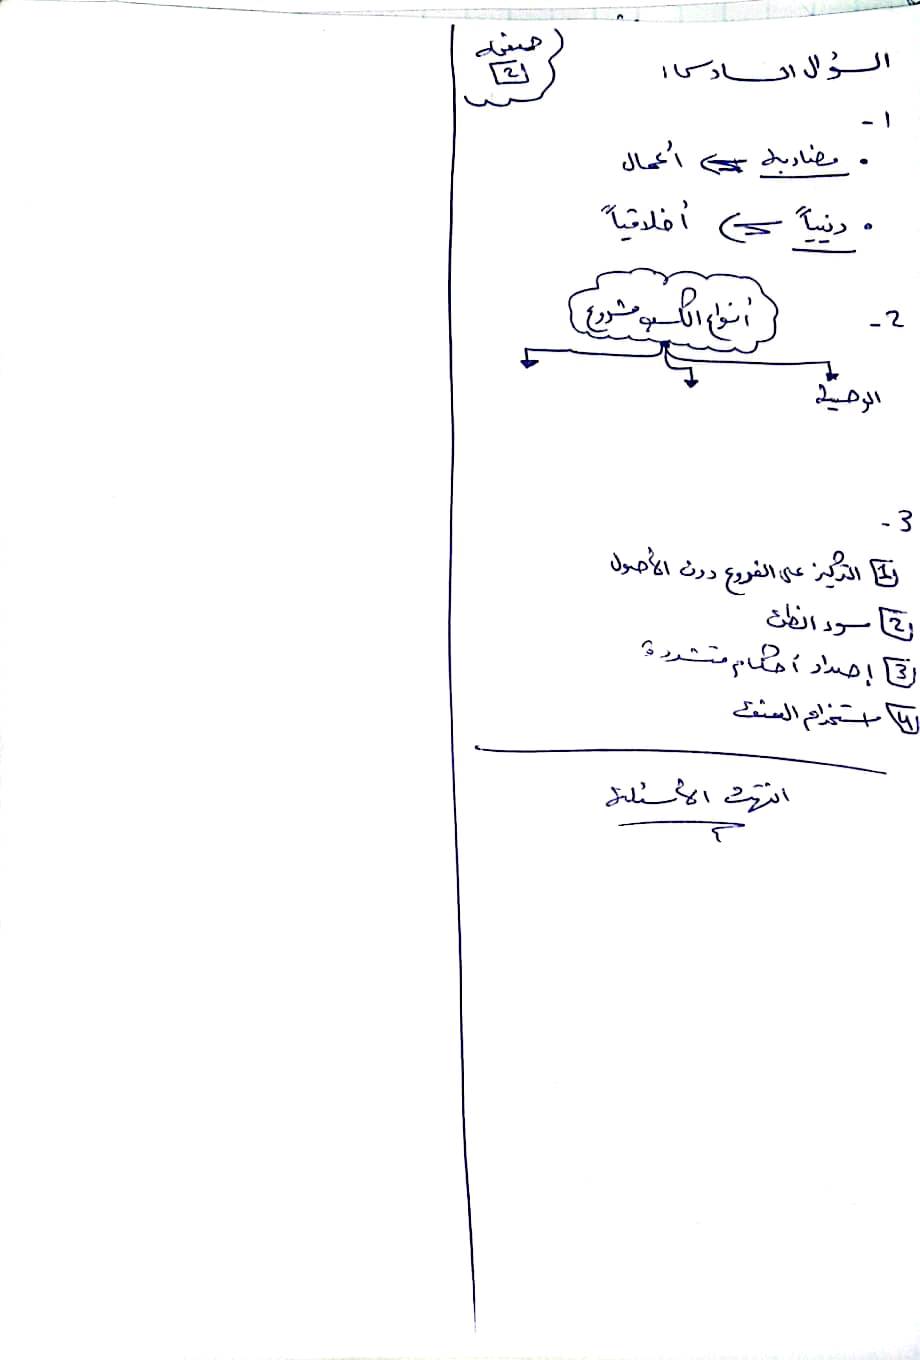 صفحة
2
السؤال السادس:
1-
• مضاربة ⇐ أعمال
• دينياً ⇐ أخلاقياً
2- أنواع الكسب مشروع
الوصية
3-
1 التركيز على الفروع دون الأصول
2 سوء الظن
3 إصدار أحكام متشددة
4 استخدام العنف
انتهت الأسئلة